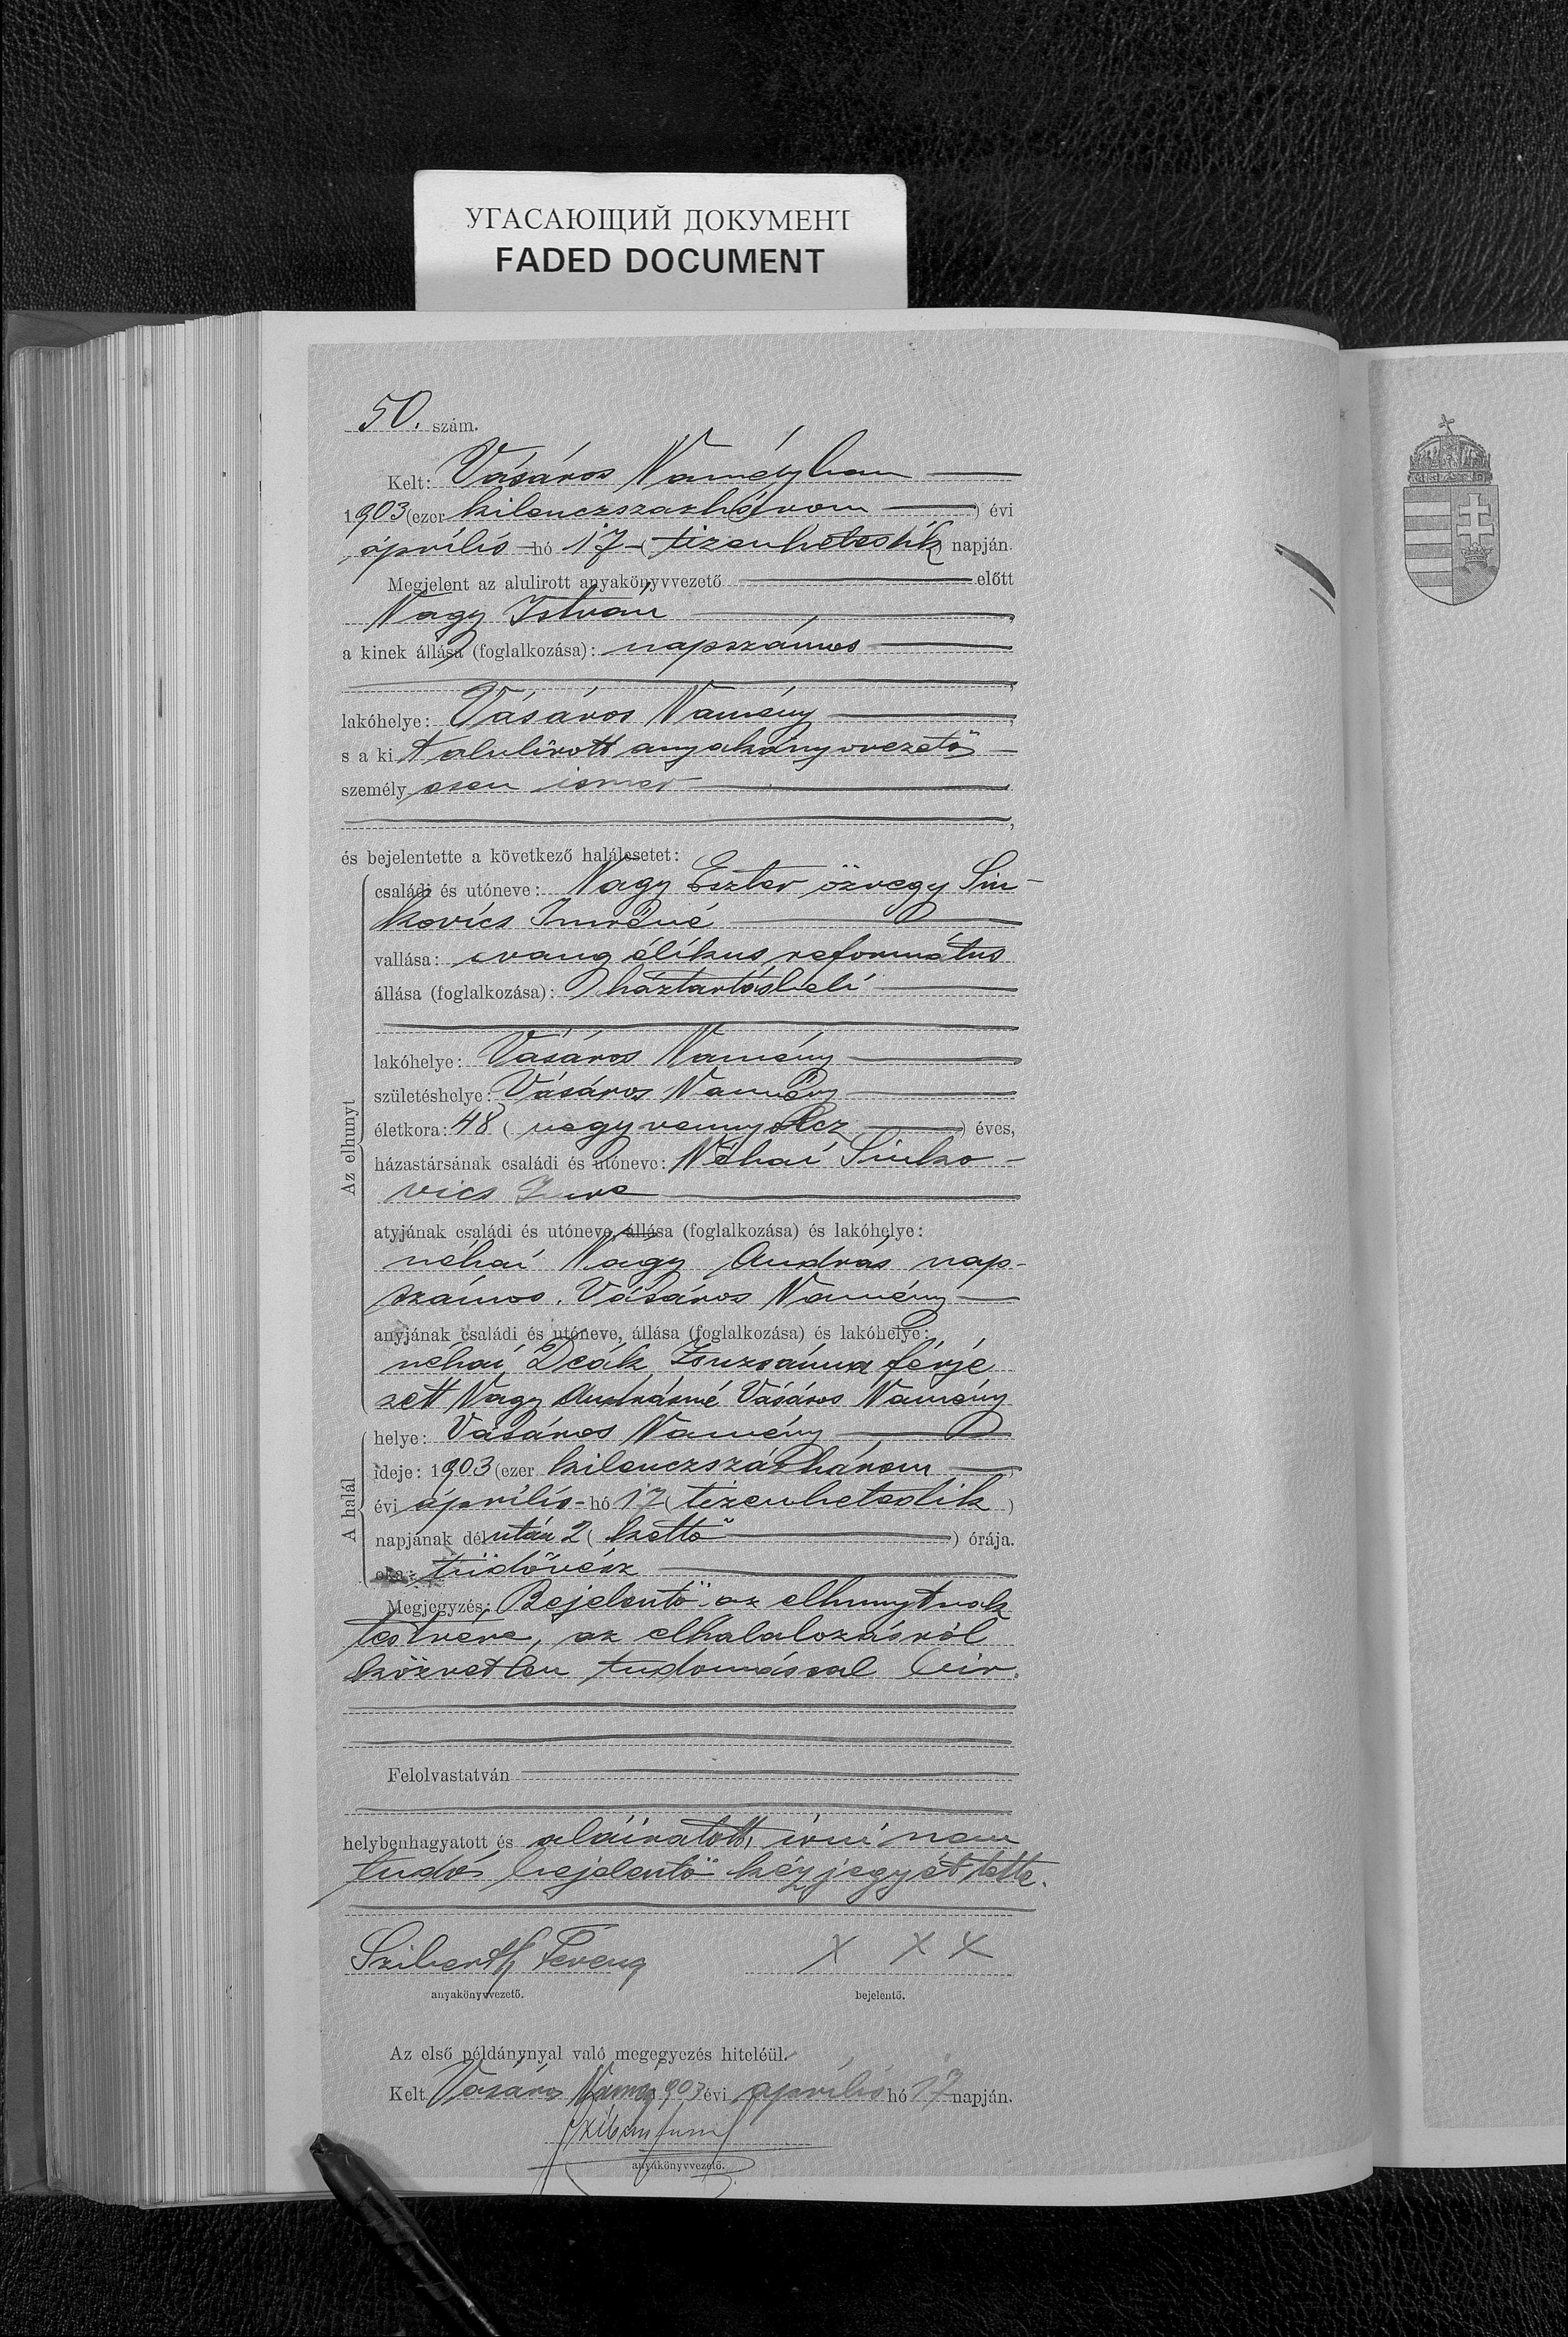 УГАСАЮЩИЙ ДОКУМЕНТ
FADED DOCUMENT
50. szám.
Kelt: Vásáros Naményban
1903 (ezer kilenczszázhárom) évi
április hó 17 (tizenhetedik) napján.
Megjelent az alulirott anyakönyvvezető előtt
Nagy István
a kinek állása (foglalkozása): napszámos
lakóhelye: Vásáros Namény
s a kit alulirott anyakönyvvezető
személyesen ismer
és bejelentette a következő halálesetet:
Az elhunyt
családi és utóneve: Nagy Eszter özvegy Sin-
kovics Imréné
vallása: evangélikus református
állása (foglalkozása): háztartásbeli
lakóhelye: Vásáros Namény
születéshelye: Vásáros Namény
életkora: 48 (negyvennyolcz) éves,
házastársának családi és utóneve: Néhai Sinko-
vics Imre
atyjának családi és utóneve, állása (foglalkozása) és lakóhelye:
néhai Nagy András nap-
számos. Vásáros Namény
anyjának családi és utóneve, állása (foglalkozása) és lakóhelye:
néhai Deák Zsuzsánna férje
zett Nagy Andrásné Vásáros Namény
A halál
helye: Vásáros Namény
ideje: 1903 (ezer kilenczszázhárom)
évi április hó 17 (tizenhetedik)
napjának délután 2 (kettő) órája.
oka: tüdővész
Megjegyzés: Bejelentő az elhunytnak
testvére, az elhalalozásról
közvetlen tudomással bir.
Felolvastatván
helybenhagyatott és aláiratott, irni nem
tudó bejelentő kézjegyét tette.
Sziberth Ferencz X X X
anyakönyvvezető. bejelentő.
Az első példánynyal való megegyezés hiteléül.
Kelt Vásáros Namény 903 évi április hó 17 napján.
anyakönyvvezető.